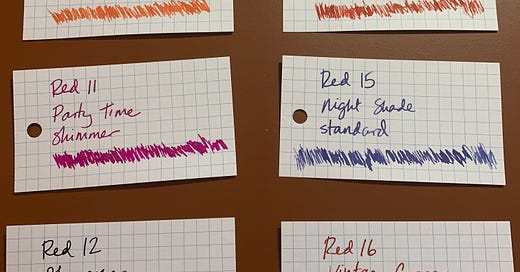 Red 11
Party Time
Shimmer
Red 15
Night Shade
standard
Red 12
Red 16
Vintage